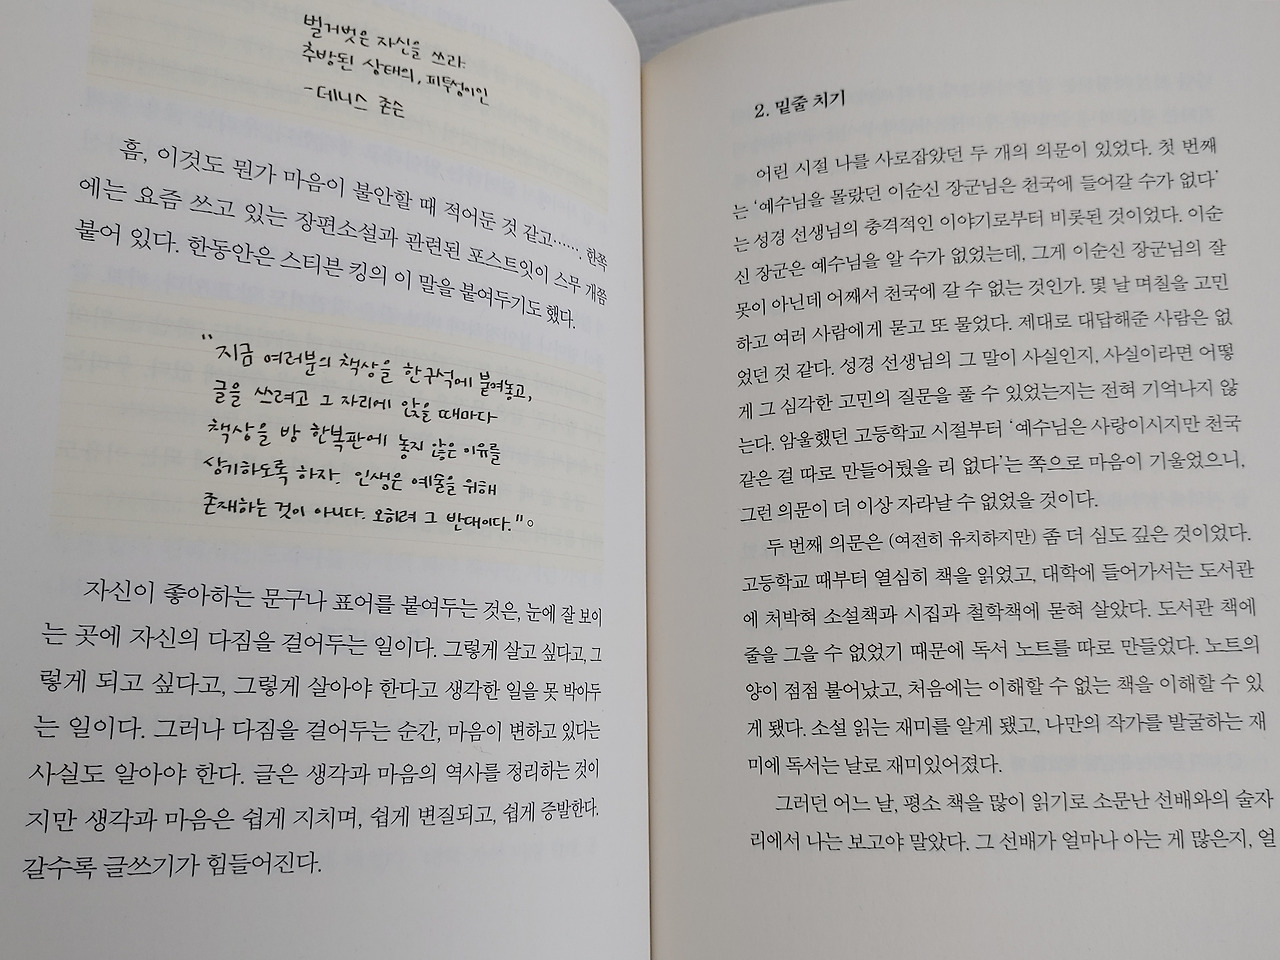 벌거벗은 자신을 쓰라.
추방된 상태의, 피투성이인
-데니스 존슨
흠, 이것도 뭔가 마음이 불안할 때 적어둔 것 같고……. 한쪽
에는 요즘 쓰고 있는 장편소설과 관련된 포스트잇이 스무 개쯤
붙어 있다. 한동안은 스티븐 킹의 이 말을 붙여두기도 했다.
"지금 여러분의 책상을 한구석에 붙여놓고,
글을 쓰려고 그 자리에 앉을 때마다
책상을 방 한복판에 놓지 않은 이유를
상기하도록 하자. 인생은 예술을 위해
존재하는 것이 아니다. 오히려 그 반대이다."。
자신이 좋아하는 문구나 표어를 붙여두는 것은, 눈에 잘 보이
는 곳에 자신의 다짐을 걸어두는 일이다. 그렇게 살고 싶다고, 그
렇게 되고 싶다고, 그렇게 살아야 한다고 생각한 일을 못 박아두
는 일이다. 그러나 다짐을 걸어두는 순간, 마음이 변하고 있다는
사실도 알아야 한다. 글은 생각과 마음의 역사를 정리하는 것이
지만 생각과 마음은 쉽게 지치며, 쉽게 변질되고, 쉽게 증발한다.
갈수록 글쓰기가 힘들어진다.
2. 밑줄 치기
어린 시절 나를 사로잡았던 두 개의 의문이 있었다. 첫 번째
는 '예수님을 몰랐던 이순신 장군님은 천국에 들어갈 수가 없다'
는 성경 선생님의 충격적인 이야기로부터 비롯된 것이었다. 이순
신 장군은 예수님을 알 수가 없었는데, 그게 이순신 장군님의 잘
못이 아닌데 어째서 천국에 갈 수 없는 것인가. 몇 날 며칠을 고민
하고 여러 사람에게 묻고 또 물었다. 제대로 대답해준 사람은 없
었던 것 같다. 성경 선생님의 그 말이 사실인지, 사실이라면 어떻
게 그 심각한 고민의 질문을 풀 수 있었는지는 전혀 기억나지 않
는다. 암울했던 고등학교 시절부터 '예수님은 사랑이시지만 천국
같은 걸 따로 만들어뒀을 리 없다'는 쪽으로 마음이 기울었으니,
그런 의문이 더 이상 자라날 수 없었을 것이다.
두 번째 의문은 (여전히 유치하지만) 좀 더 심도 깊은 것이었다.
고등학교 때부터 열심히 책을 읽었고, 대학에 들어가서는 도서관
에 처박혀 소설책과 시집과 철학책에 묻혀 살았다. 도서관 책에
줄을 그을 수 없었기 때문에 독서 노트를 따로 만들었다. 노트의
양이 점점 불어났고, 처음에는 이해할 수 없는 책을 이해할 수 있
게 됐다. 소설 읽는 재미를 알게 됐고, 나만의 작가를 발굴하는 재
미에 독서는 날로 재미있어졌다.
그러던 어느 날, 평소 책을 많이 읽기로 소문난 선배와의 술자
리에서 나는 보고야 말았다. 그 선배가 얼마나 아는 게 많은지, 얼